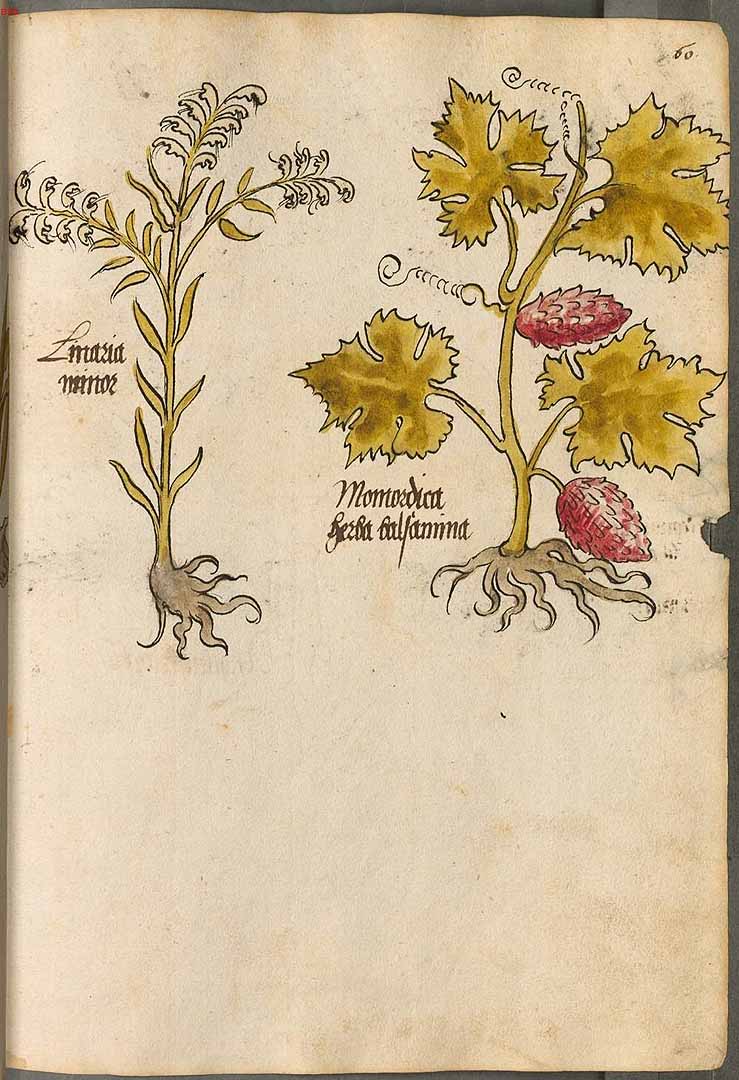 60.
Linaria
minor
Momordica
herba balsamina